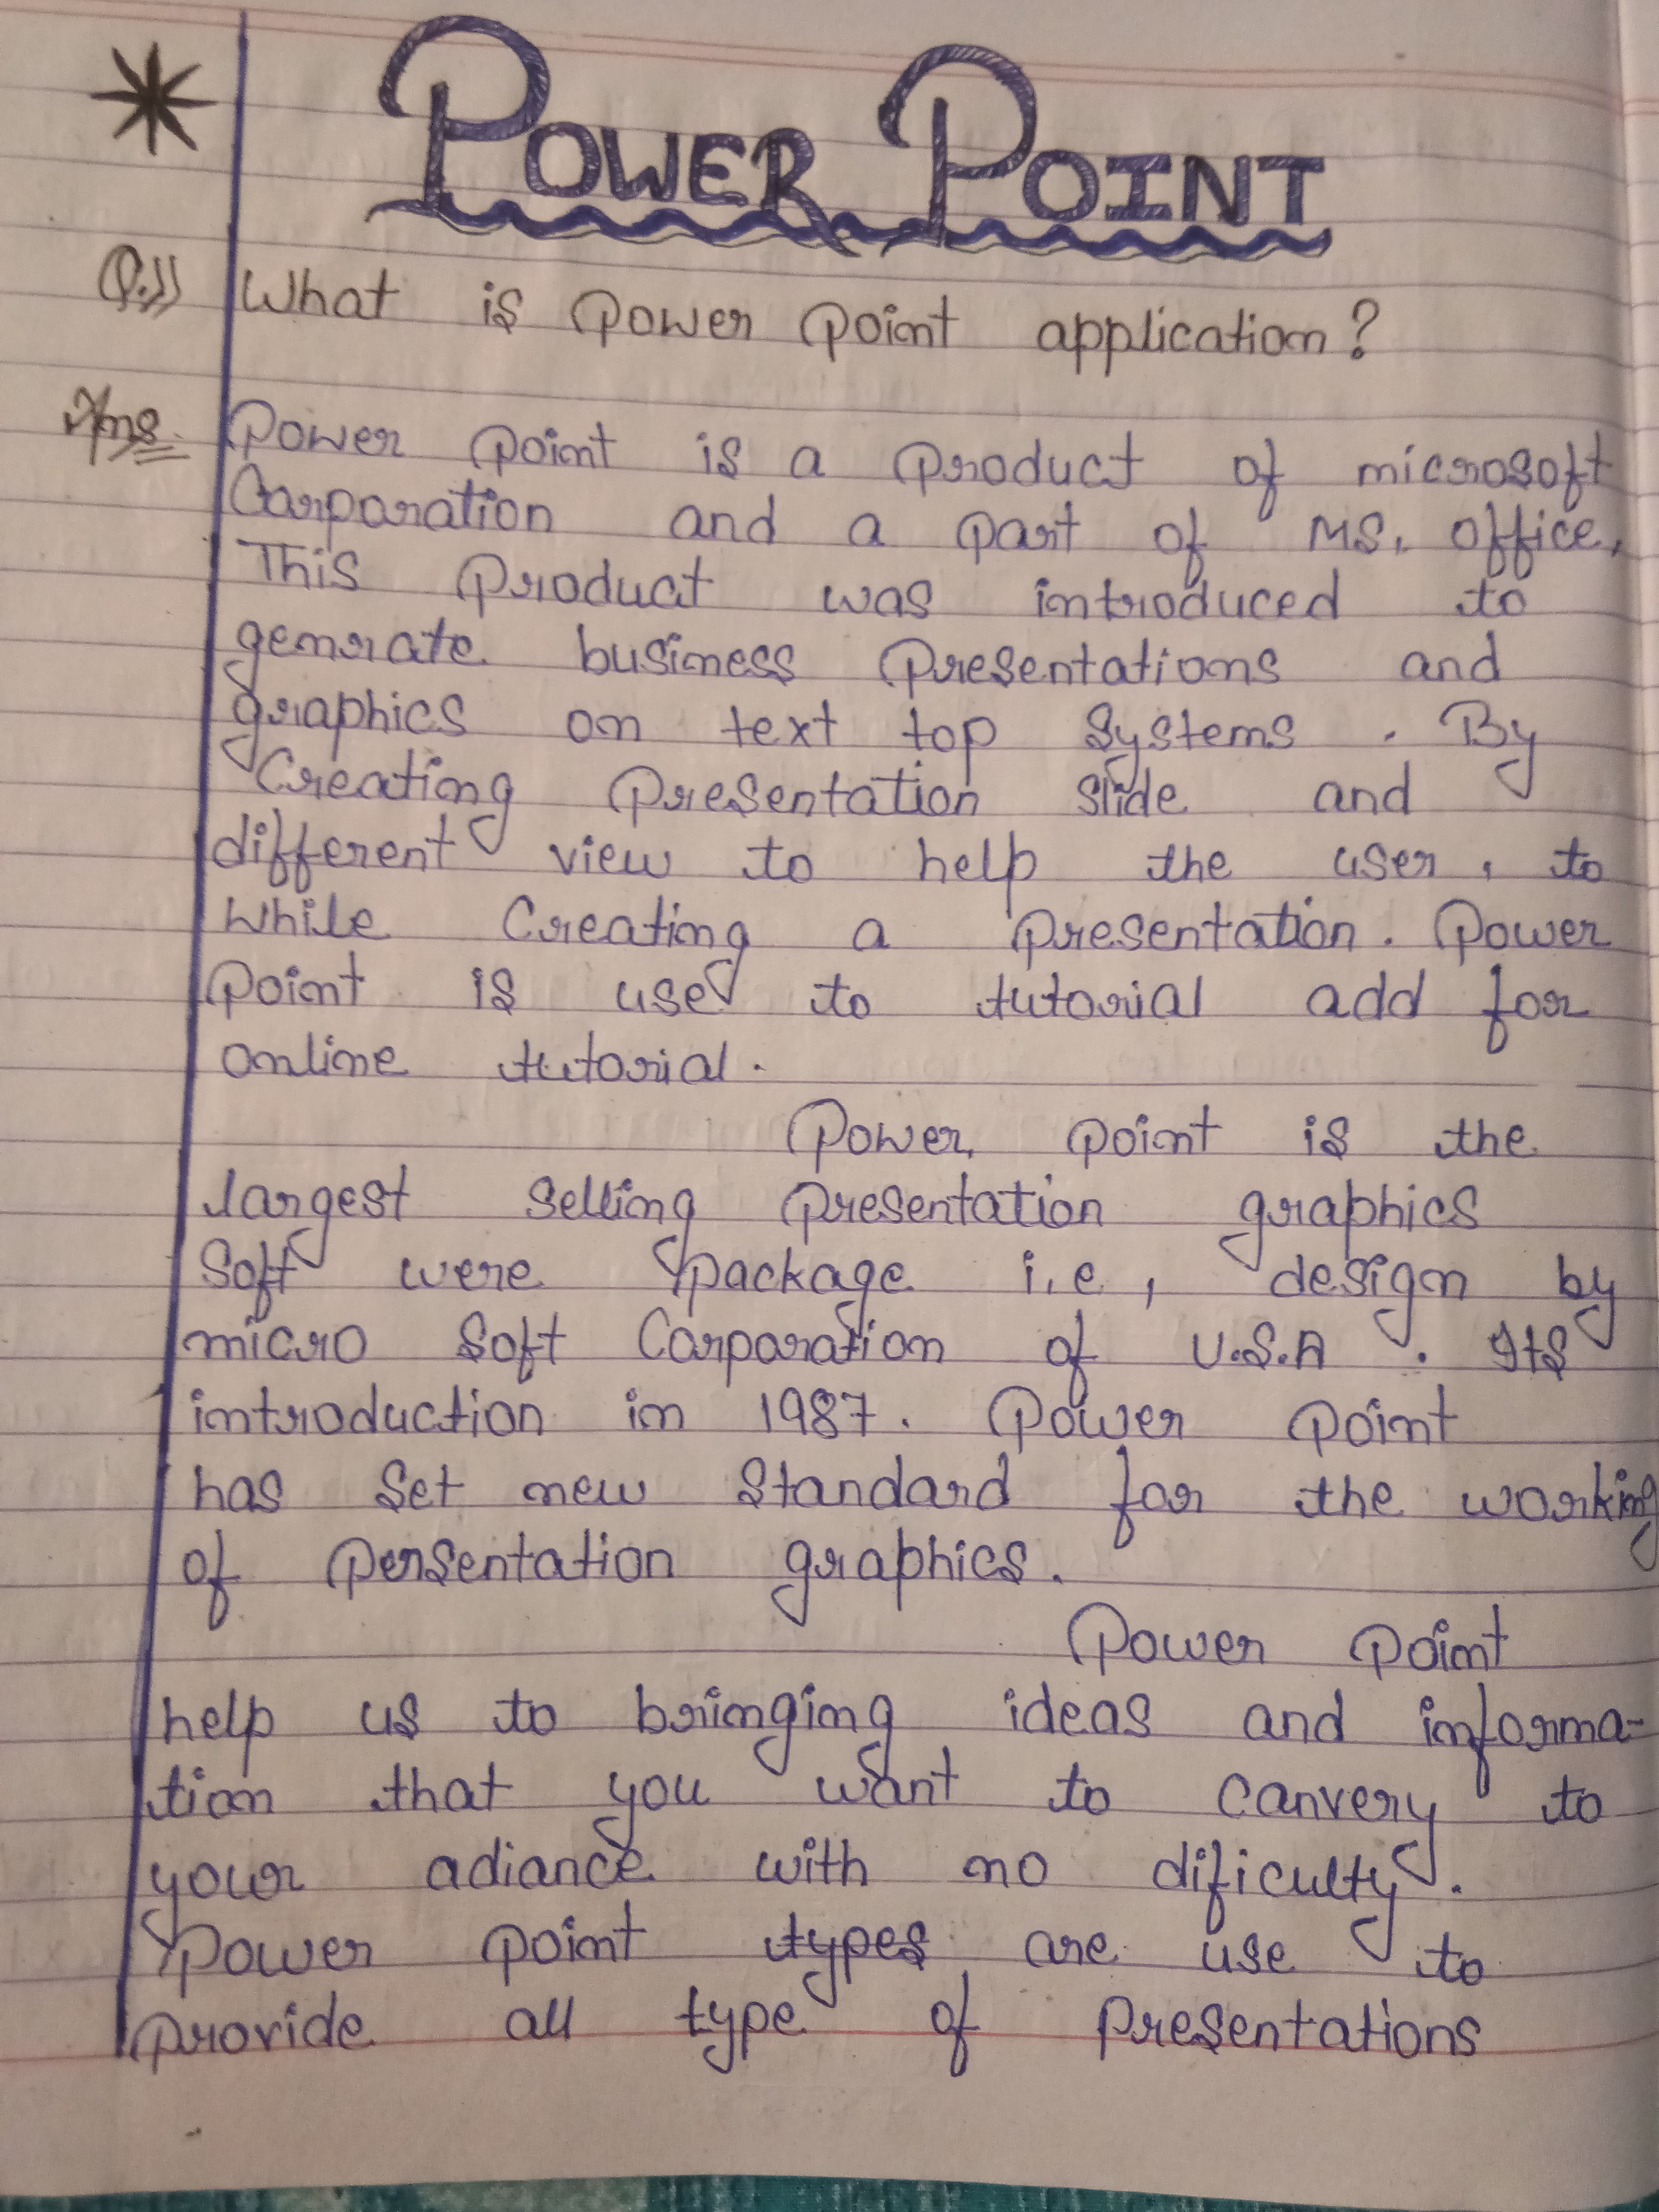 POWER POINT
Q.1) What is Power Point application?
Ans. Power Point is a Product of microsoft
Carparation and a part of MS. office,
This Product was introduced to
genrate business Presentations and
graphics on text top Systems . By
Creating Presentation slide and
different view to help the user , to
While Creating a Presentation. Power
Point is use to tutorial add for
online tutorial.
Power Point is the
largest Selling Presentation graphics
Soft were Package i.e, design by
micro Soft Carparation of U.S.A . Its
introduction in 1987. Power Point
has Set new Standard for the working
of Persentation graphics.
Power Point
help us to bringing ideas and informa-
tion that you want to canvery to
your adiance with no dificulty.
Power point types are use to
Provide all type of Presentations